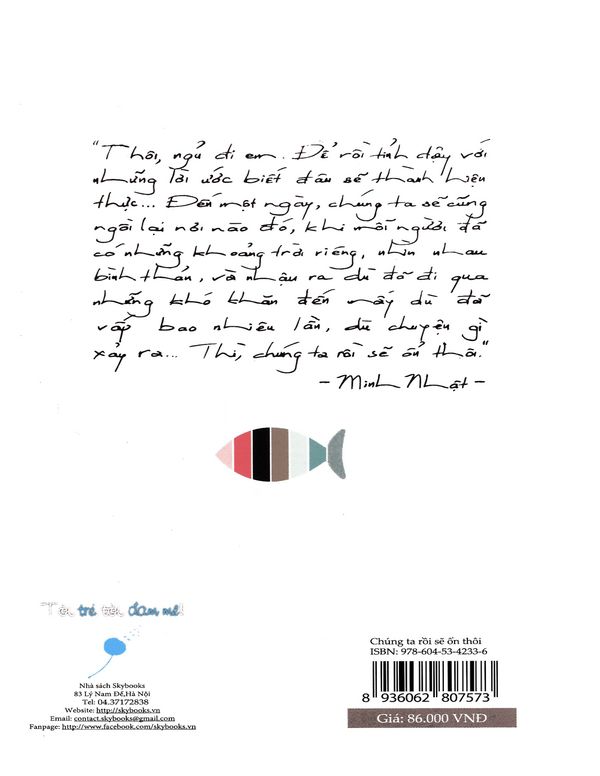 "Thôi, ngủ đi em. Để rồi tỉnh dậy với
những lời ước biết đâu sẽ thành hiện
thực... Đến một ngày, chúng ta sẽ cùng
ngồi lại nơi nào đó, khi mỗi người đã
có những khoảng trời riêng, nhìn nhau
bình thản, và nhận ra dù đã đi qua
những khó khăn đến mấy dù đã
vấp bao nhiêu lần, dù chuyện gì
xảy ra... Thì, chúng ta rồi sẽ ổn thôi."
- Minh Nhật -
trẻ đam mê!
Nhà sách Skybooks
83 Lý Nam Đế,Hà Nội
Tel: 04.37172838
Website: http://skybooks.vn
Email: contact.skybooks@gmail.com
Fanpage: http://www.facebook.com/skybooks.vn
Chúng ta rồi sẽ ổn thôi
ISBN: 978-604-53-4233-6
8 936062 807573
Giá: 86.000 VNĐ